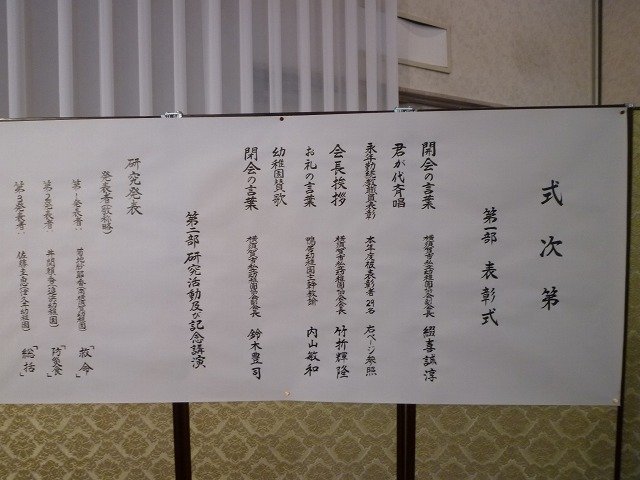 式次第
第一部 表彰式
開会の言葉 横須賀市私立幼稚園協会副会長 綴喜誠淳
君が代斉唱
永年勤続教職員表彰 本年度被表彰者29名 右ページ参照
会長挨拶 横須賀市私立幼稚園協会会長 竹折輝隆
お礼の言葉 鴨居幼稚園主幹教諭 内山敏和
幼稚園賛歌
閉会の言葉 横須賀市私立幼稚園協会副会長 鈴木豊司
第二部 研究活動及び記念講演
研究発表
発表者(敬称略)
第1発表者: 「救命」
第2発表者: 「防災食」
第3発表者: 「総括」